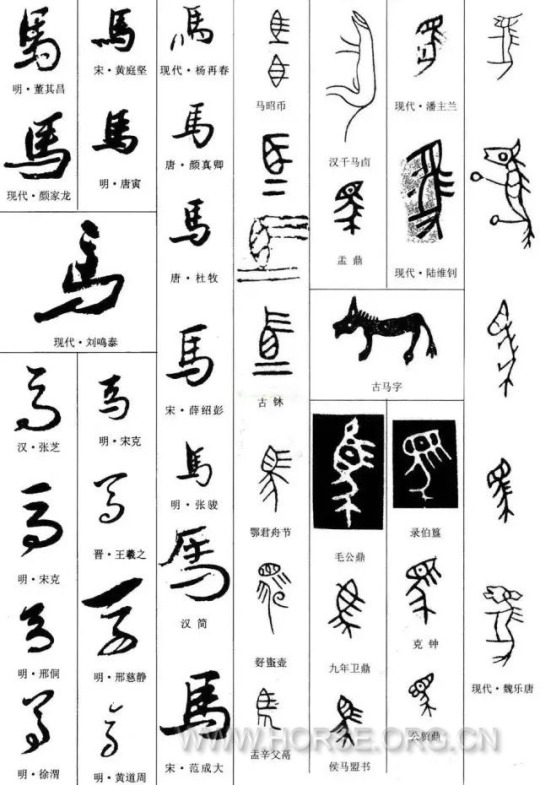 馬
明·董其昌
馬
现代·颜家龙
馬
宋·黄庭坚
馬
明·唐寅
馬
现代·刘鸣泰
馬
汉·张芝
馬
明·宋克
馬
明·邢侗
馬
明·徐渭
馬
明·宋克
馬
晋·王羲之
馬
明·邢慈静
馬
明·黄道周
馬
现代·杨再春
馬
唐·颜真卿
馬
唐·杜牧
馬
宋·薛绍彭
馬
明·张骏
馬
汉 简
馬
宋·范成大
马昭币
鄂君舟节
汉千马卤
盂 鼎
现代·潘主兰
现代·陆维钊
古马字
毛公鼎
九年卫鼎
侯马盟书
录伯簋
克 钟
公贸鼎
现代·魏乐唐
WWW.HORSE.ORG.CN